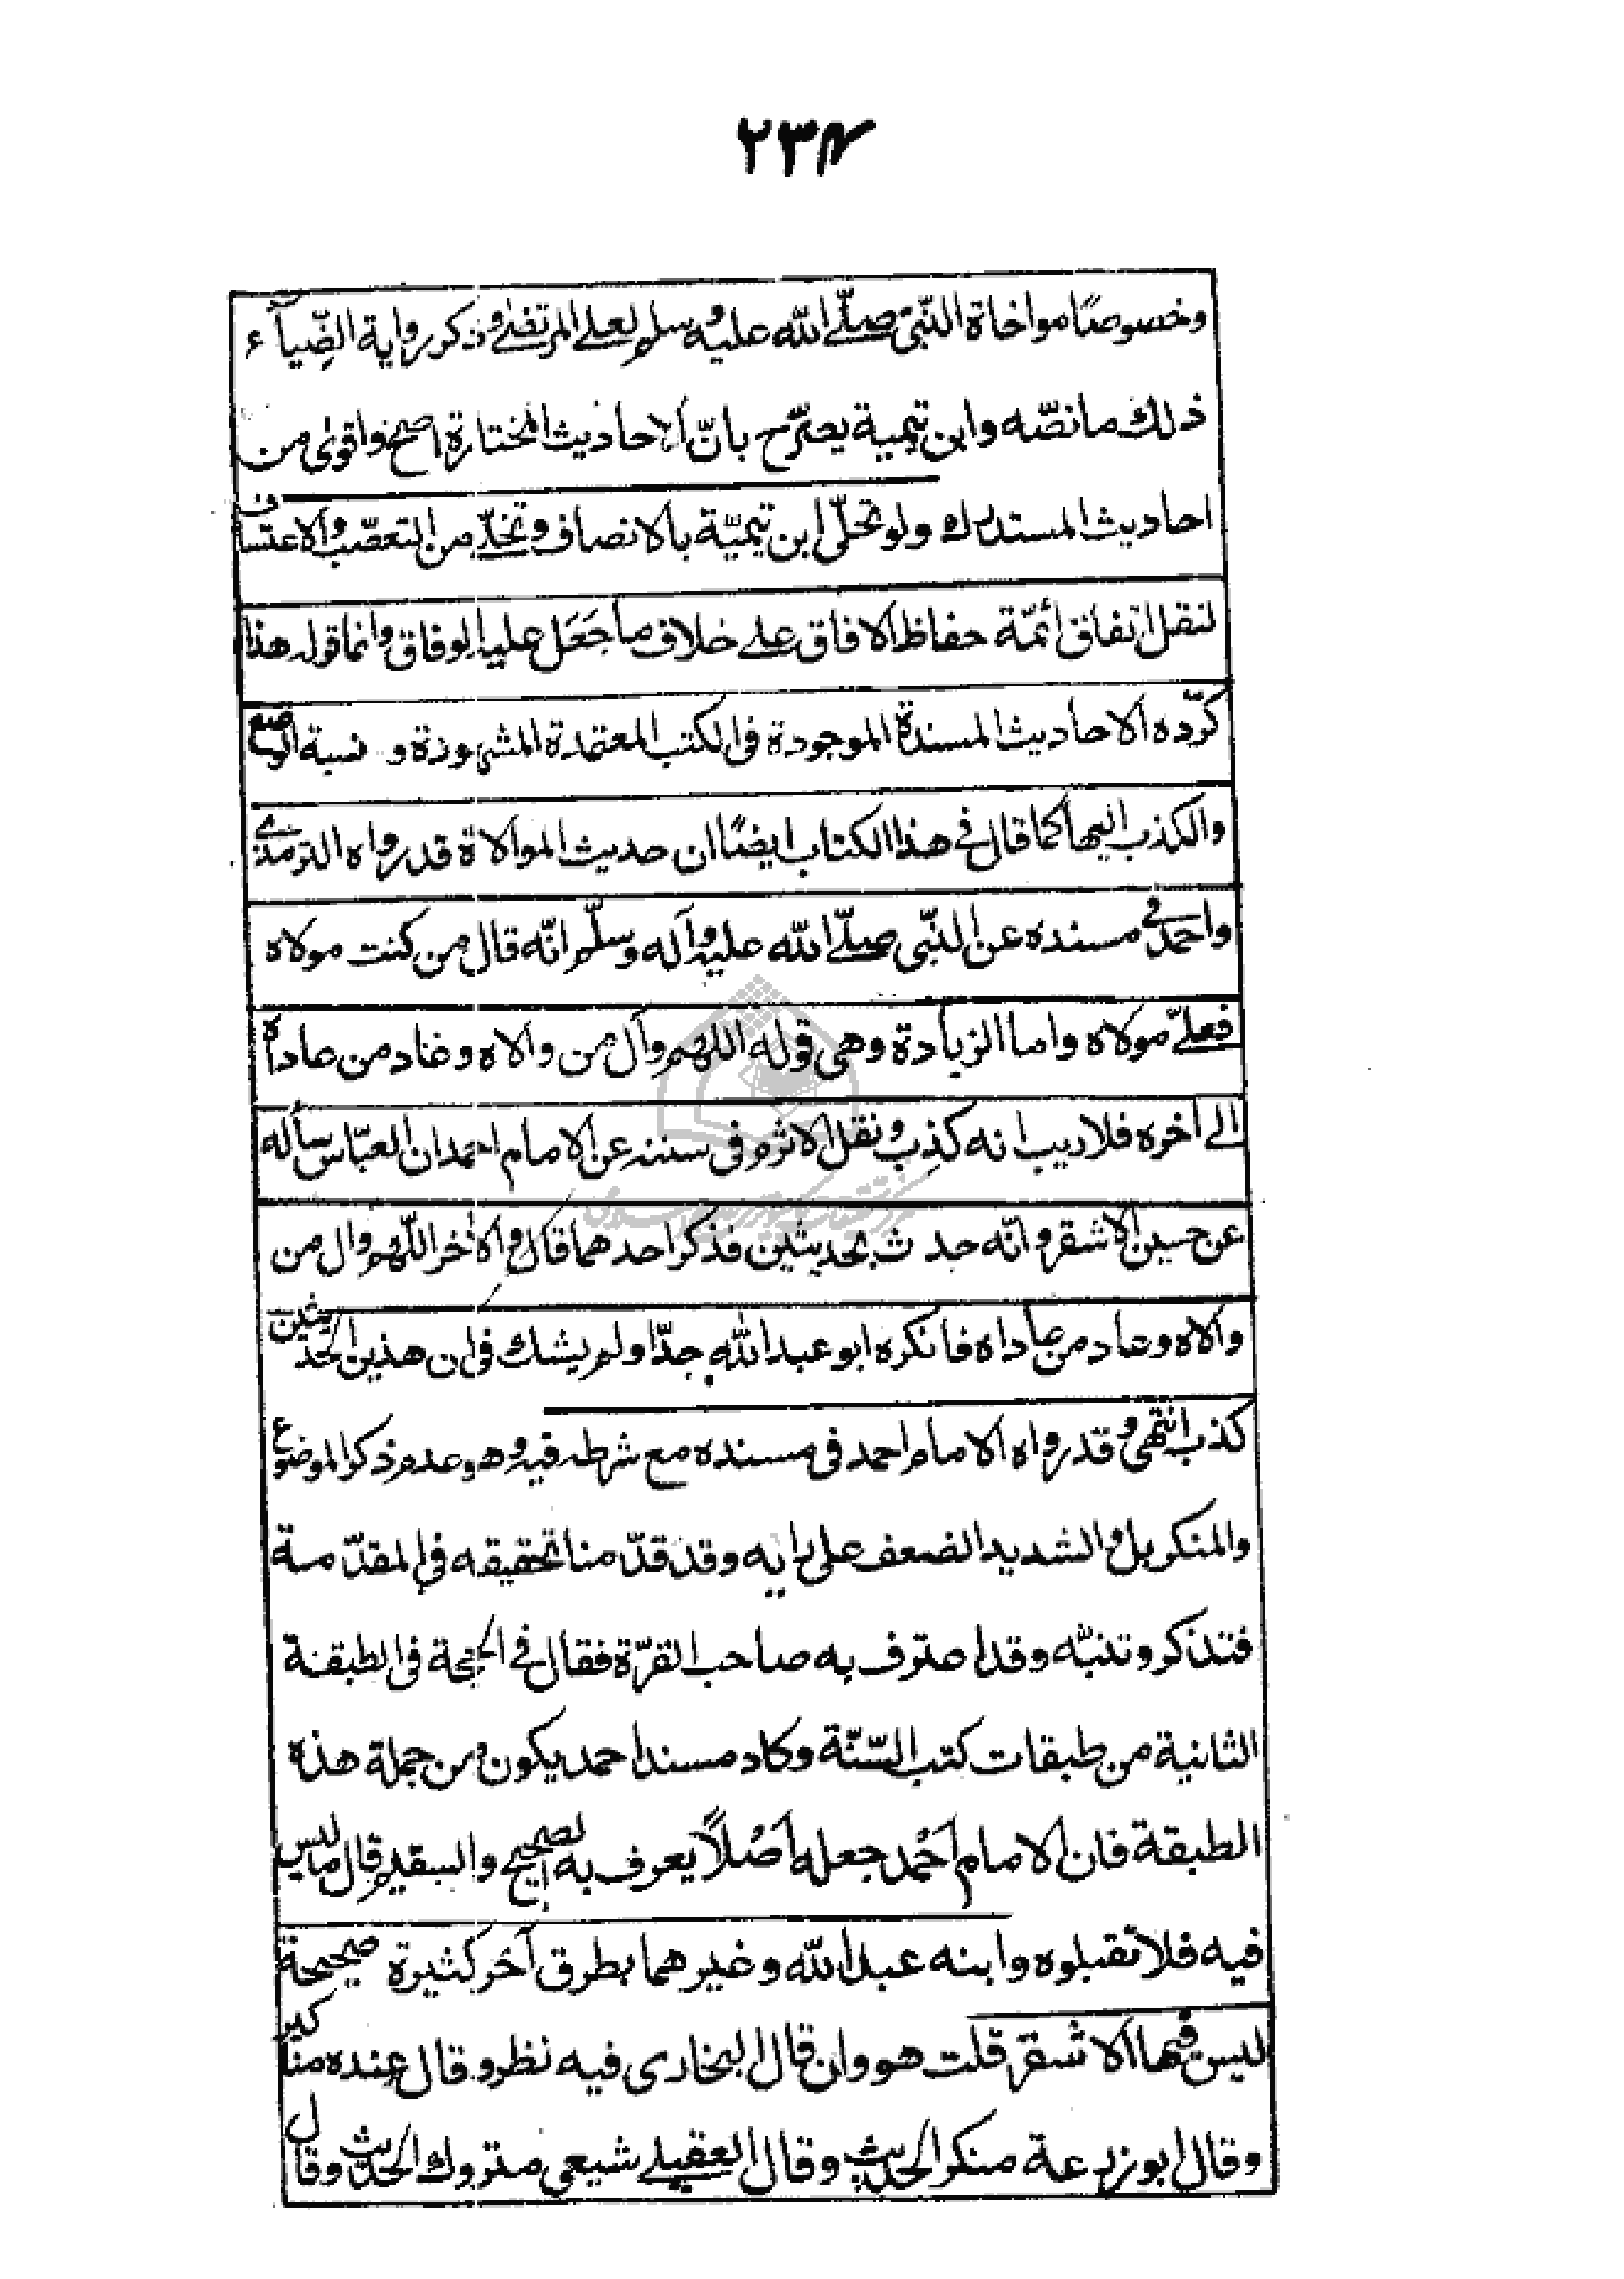 ٢٣٤
وخصوصًا مواخاة النّبيّ صلّے الله عليه وسلم لعلے المرتضے وذكر رواية الضّياء
ذلك ما نصّه وابن تيمية يصرّح بانّ الاحاديث المختارة اصح واقوى من
احاديث المستدرك ولو تحلّى ابن تيميّة بالانصاف وتخلّے من التعصّب والاعتساف
لنقل اتفاق أئمّة حفاظ الافاق علے خلاف ما جَعَل عليه الوفاق وانما قوله هذا
كردّه الاحاديث المسندة الموجودة فى الكتب المعتمدة المشهورة و نسبة الوضع
والكذب اليها كما قال فى هذا الكتاب ايضًا ان حديث الموالاة قد رواه الترمذے
واحمد فى مسنده عن النّبى صلّے الله عليه وآله وسلّم انّه قال من كنت مولاه
فعلےّ مولاه واما الزيادة وهى قوله اللهم وآل من والاه وعاد من عاداه
الى آخره فلا ريب انه كذب ونقل الاثرم فى سننه عن الامام احمد ان العبّاس سأله
عن حسين الاشقر وانّه حدث بحديثين فذكر احدهما قال والآخر اللّهم وال من
والاه وعاد من عاداه فانكره ابو عبد الله جدّا ولم يشك فى ان هذين الحديثين
كذب انتهى وقد رواه الامام احمد فى مسنده مع شرطه فيه وهو عدم ذكر الموضوع
والمنكر بل والشديد الضعف على رايه وقد قدّمنا تحقيقه فى المقدّمة
فتذكر وتنبّه وقد اعترف به صاحب القرّة فقال فى الحجة فى الطبقة
الثانية من طبقات كتب السّنّة وكاد مسند احمد يكون من جملة هذه
الطبقة فان الامام أحْمد جعله أصْلاً يعرف به الصحيح والسقيم قال ما ليس
فيه فلا تقبلوه وابنه عبد الله وغيرهما بطرق آخر كثيرة صحيحة
ليس فيها الاشقر قلت هو وان قال البخارى فيه نظر وقال عنده مناكير
وقال ابو زرعة منكر الحديث وقال العقيلے شيعى متروك الحديث وقال